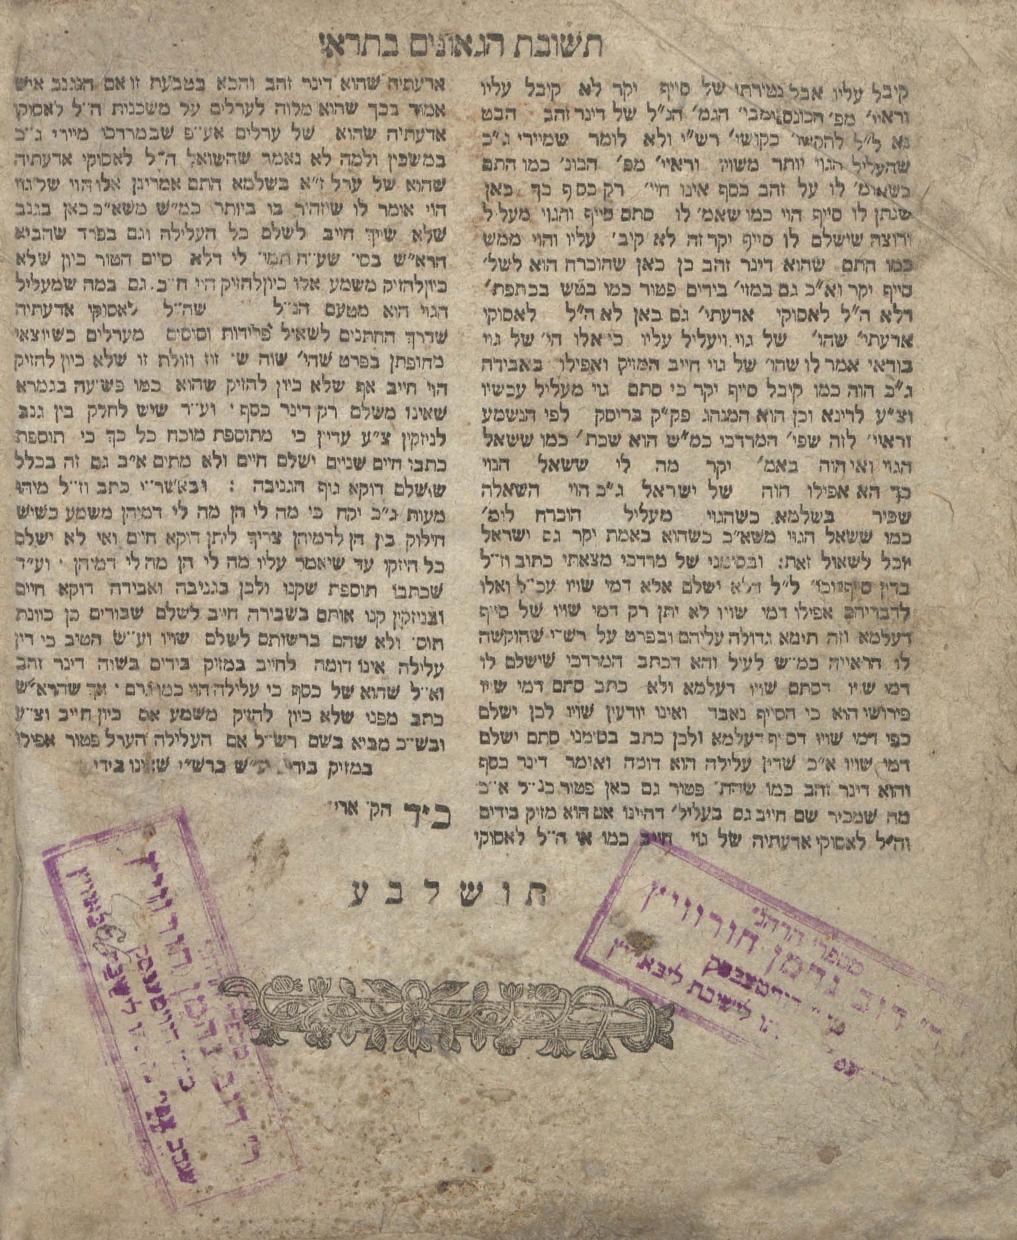 תשובת הגאונים בתראי
קיבל עליו אבל נטירתו של סייף יקר לא קיבל עליו
וראיי׳ מפ׳ הכונס הנ״ל של דינר זהב הבט
נא ל״ל בקושי׳ רש״י ולא לומר שמיירי ג״כ
שהעליל הגוי יותר משויו וראיי׳ מפ׳ הכונ׳ כמו התם
כשאומ׳ לו על זהב כסף אינו חיי׳ רק כסף כך כאן
שנתן לו סייף הוי כמו שאמ׳ לו סתם סייף והגוי מעליל
ורוצה שישלם לו סייף יקר זה לא קיב׳ עליו והוי ממש
כמו התם שהוא דינר זהב כן כאן שהוכרח הוא לשל׳
סייף יקר וא״כ גם במזי׳ בידים פטור כמו בטש בכתפת׳
דלא ה״ל לאסוקי אדעתי׳ גם כאן לא ה״ל לאסוקי
אדעתי׳ שהו׳ של גוי ויעליל עליו כי אלו הי׳ של גוי
בודאי אמר לו שהו׳ של גוי חייב המזיק ואפילו באבידה
ג״כ הוה כמו קיבל סייף יקר כי סתם גוי מעליל עכשיו
וצ״ע לדינא וכן הוא המנהג פק״ק בריסק לפי הנשמע
וראיי׳ לזה שפי׳ המרדכי כמ״ש הוא שכת׳ כמו ששאל
הגוי ואי הוה באמ׳ יקר מה לי ששאל הגוי
כך הא אפילו הוה של ישראל ג״כ הוי השאלה
שפיר בשלמא כשהגוי מעליל הוכרח לומ׳
כמו ששאל הגוי משא״כ כשהוא באמת יקר גם ישראל
יוכל לשאול זאת: ובסימני של מרדכי מצאתי כתוב וז״ל
בדין סייף וכו׳ ל״ל דלא ישלם אלא דמי שויו עכ״ל ואלו
לדבריהם אפילו דמי שויו לא יתן רק דמי שויו של סייף
דעלמא וזה תימא גדולה עליהם ובפרט על רש״י שהוקשה
לו הראייה כמ״ש לעיל והא דכתב המרדכי שישלם לו
דמי שויו דסתם שויו דעלמא ולא כתב סתם דמי שויו
פירושו הוא כי הסייף נאבד ואינו יודעין שויו לכן ישלם
כפי דמי שויו דסייף דעלמא ולכן כתב בסימני סתם ישלם
דמי שויו א״כ שדין עלילה הוא דומה ואומר דינר כסף
והוא דינר זהב כמו שהת׳ פטור גם כאן פטור כנ״ל א״כ
מה שמכיר שם חייב גם בעליל׳ דהיינו אם הוא מזיק בידים
וה״ל לאסוקי אדעתיה של גוי חייב כמו אי ה״ל לאסוקי
אדעתיה שהוא דינר זהב והכא בטבעת זו אם הגונב איש
אמוד בכך שהוא מלוה לערלים על משכנות ה״ל לאסוקי
אדעתיה שהוא של ערלים אע״פ שבמרדכי מיירי ג״כ
במשכון ולמה לא נאמר שהשואל ה״ל לאסוקי אדעתיה
שהוא של ערל ז״א בשלמא התם אמרינן אלו הוי של גוי
הוי אומר לו שיזהיר בו ביותר כמ״ש משא״כ כאן בגנב
שלא שייך חייב לשלם כל העלילה וגם בפרד שהביא
הרא״ש בסי׳ לי דלא סיים הטור כיון שלא
כיון להזיק משמע אלו כיון להזיק הי׳ ח״ב. גם במה שמעליל
הגוי הוא מטעם הנ״ל שה״ל לאסוקי אדעתיה
שדרך החתנים לשאול פרידות וסוסים מערלים כשיוצאי
מחופתן בפרט שהי׳ שוה זוז וזולת זו שלא כיון להזיק
הוי חייב אף שלא כיון להזיק שהוא כמו פשיעה בגמרא
שאינו משלם רק דינר כסף׳ וע״ד שיש לחלק בין גנב
לניזקין צ״ע עדיין כי מתוספת מוכח כל כך כי תוספת
כתבו חיים שניים ישלם חיים ולא מתים א״כ גם זה בכלל
שישלם דוקא גוף הגניבה : ובאשר״י כתב וז״ל מיהו
מעות ג״כ יקח כי מה לי הן מה לי דמיהן משמע כשיש
חילוק בין הן לדמיהן צריך ליתן דוקא חיים ואי לא ישלם
כל היזקו עד שיאמר עליו מה לי הן מה לי דמיהן׳ וע״ד
שכתבו תוספת שקנו ולכן בגניבה ואבידה דוקא חיים
ובניזקין קנו אותם בשבירה חייב לשלם שבורים כן כוונת
תוס׳ ולא שהם ברשותם לשלם שויו וע״ש הטיב כי דין
עלילה אינו דומה לחייב במזיק בידים בשוה דינר זהב
וא״ל שהוא של כסף כי עלילה הוי כמו אך שהרא״ש
כתב מפני שלא כיון להזיק משמע אם כיון חייב וצ״ע
ובש״כ מביא בשם רש״ל אם העלילה הערל פטור אפילו
במזיק בידי׳ ברש״י
כ״ד הק׳ ארי׳
תושלבע
מספרי הרהג׳
ר׳ דוב נחמן הורוויץ
לישיבת ליבאוויץ
ר׳ דוב נחמן הורוויץ